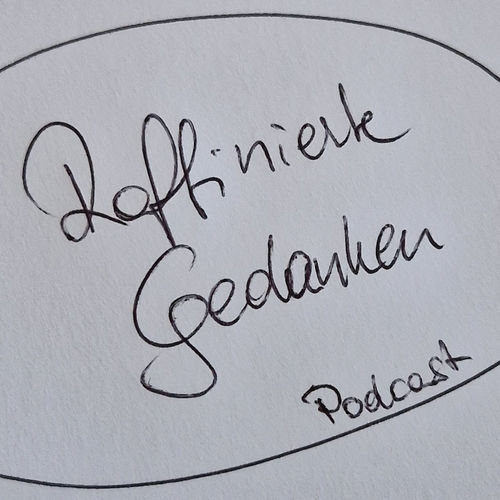 Raffinierte
Gedanken
Podcast